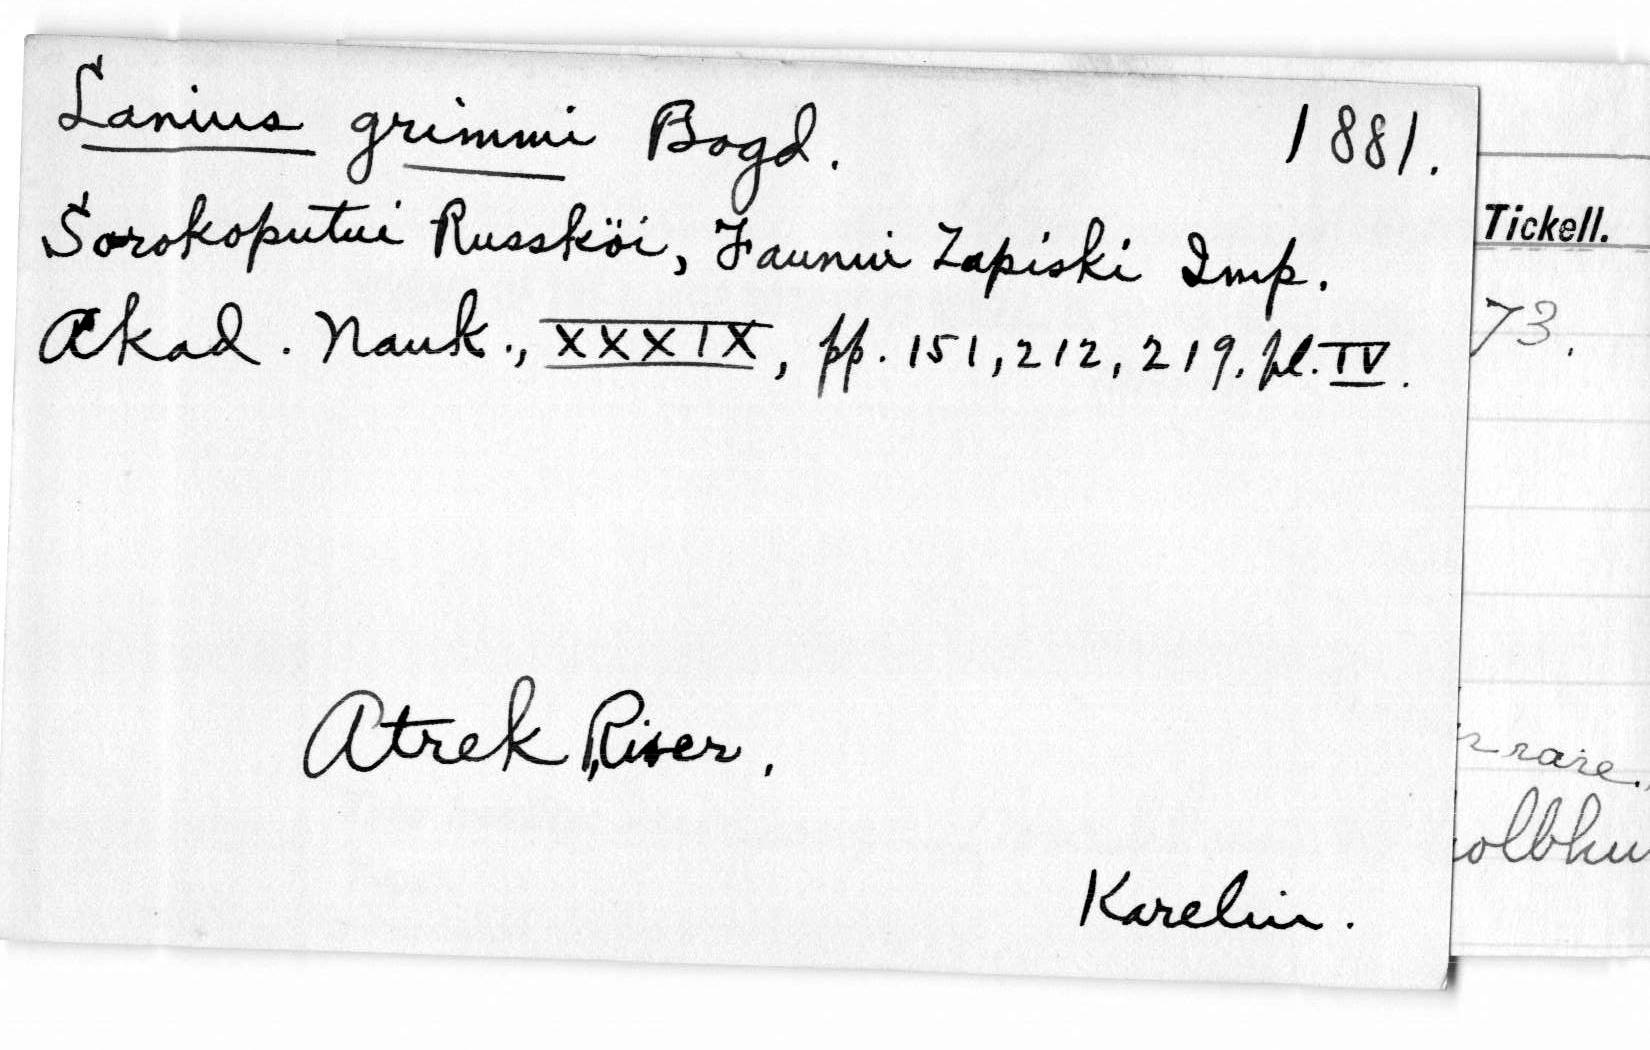 Lanius grimmi Bogd. 1881.
Sorokoputui Russköi, Faunui Zapiski Imp.
Akad. Nauk., XXXIX, pp. 151, 212, 219. pl. IV.
Atrek River.
Karelin.
Tickell.
73.
rare.
olbhu